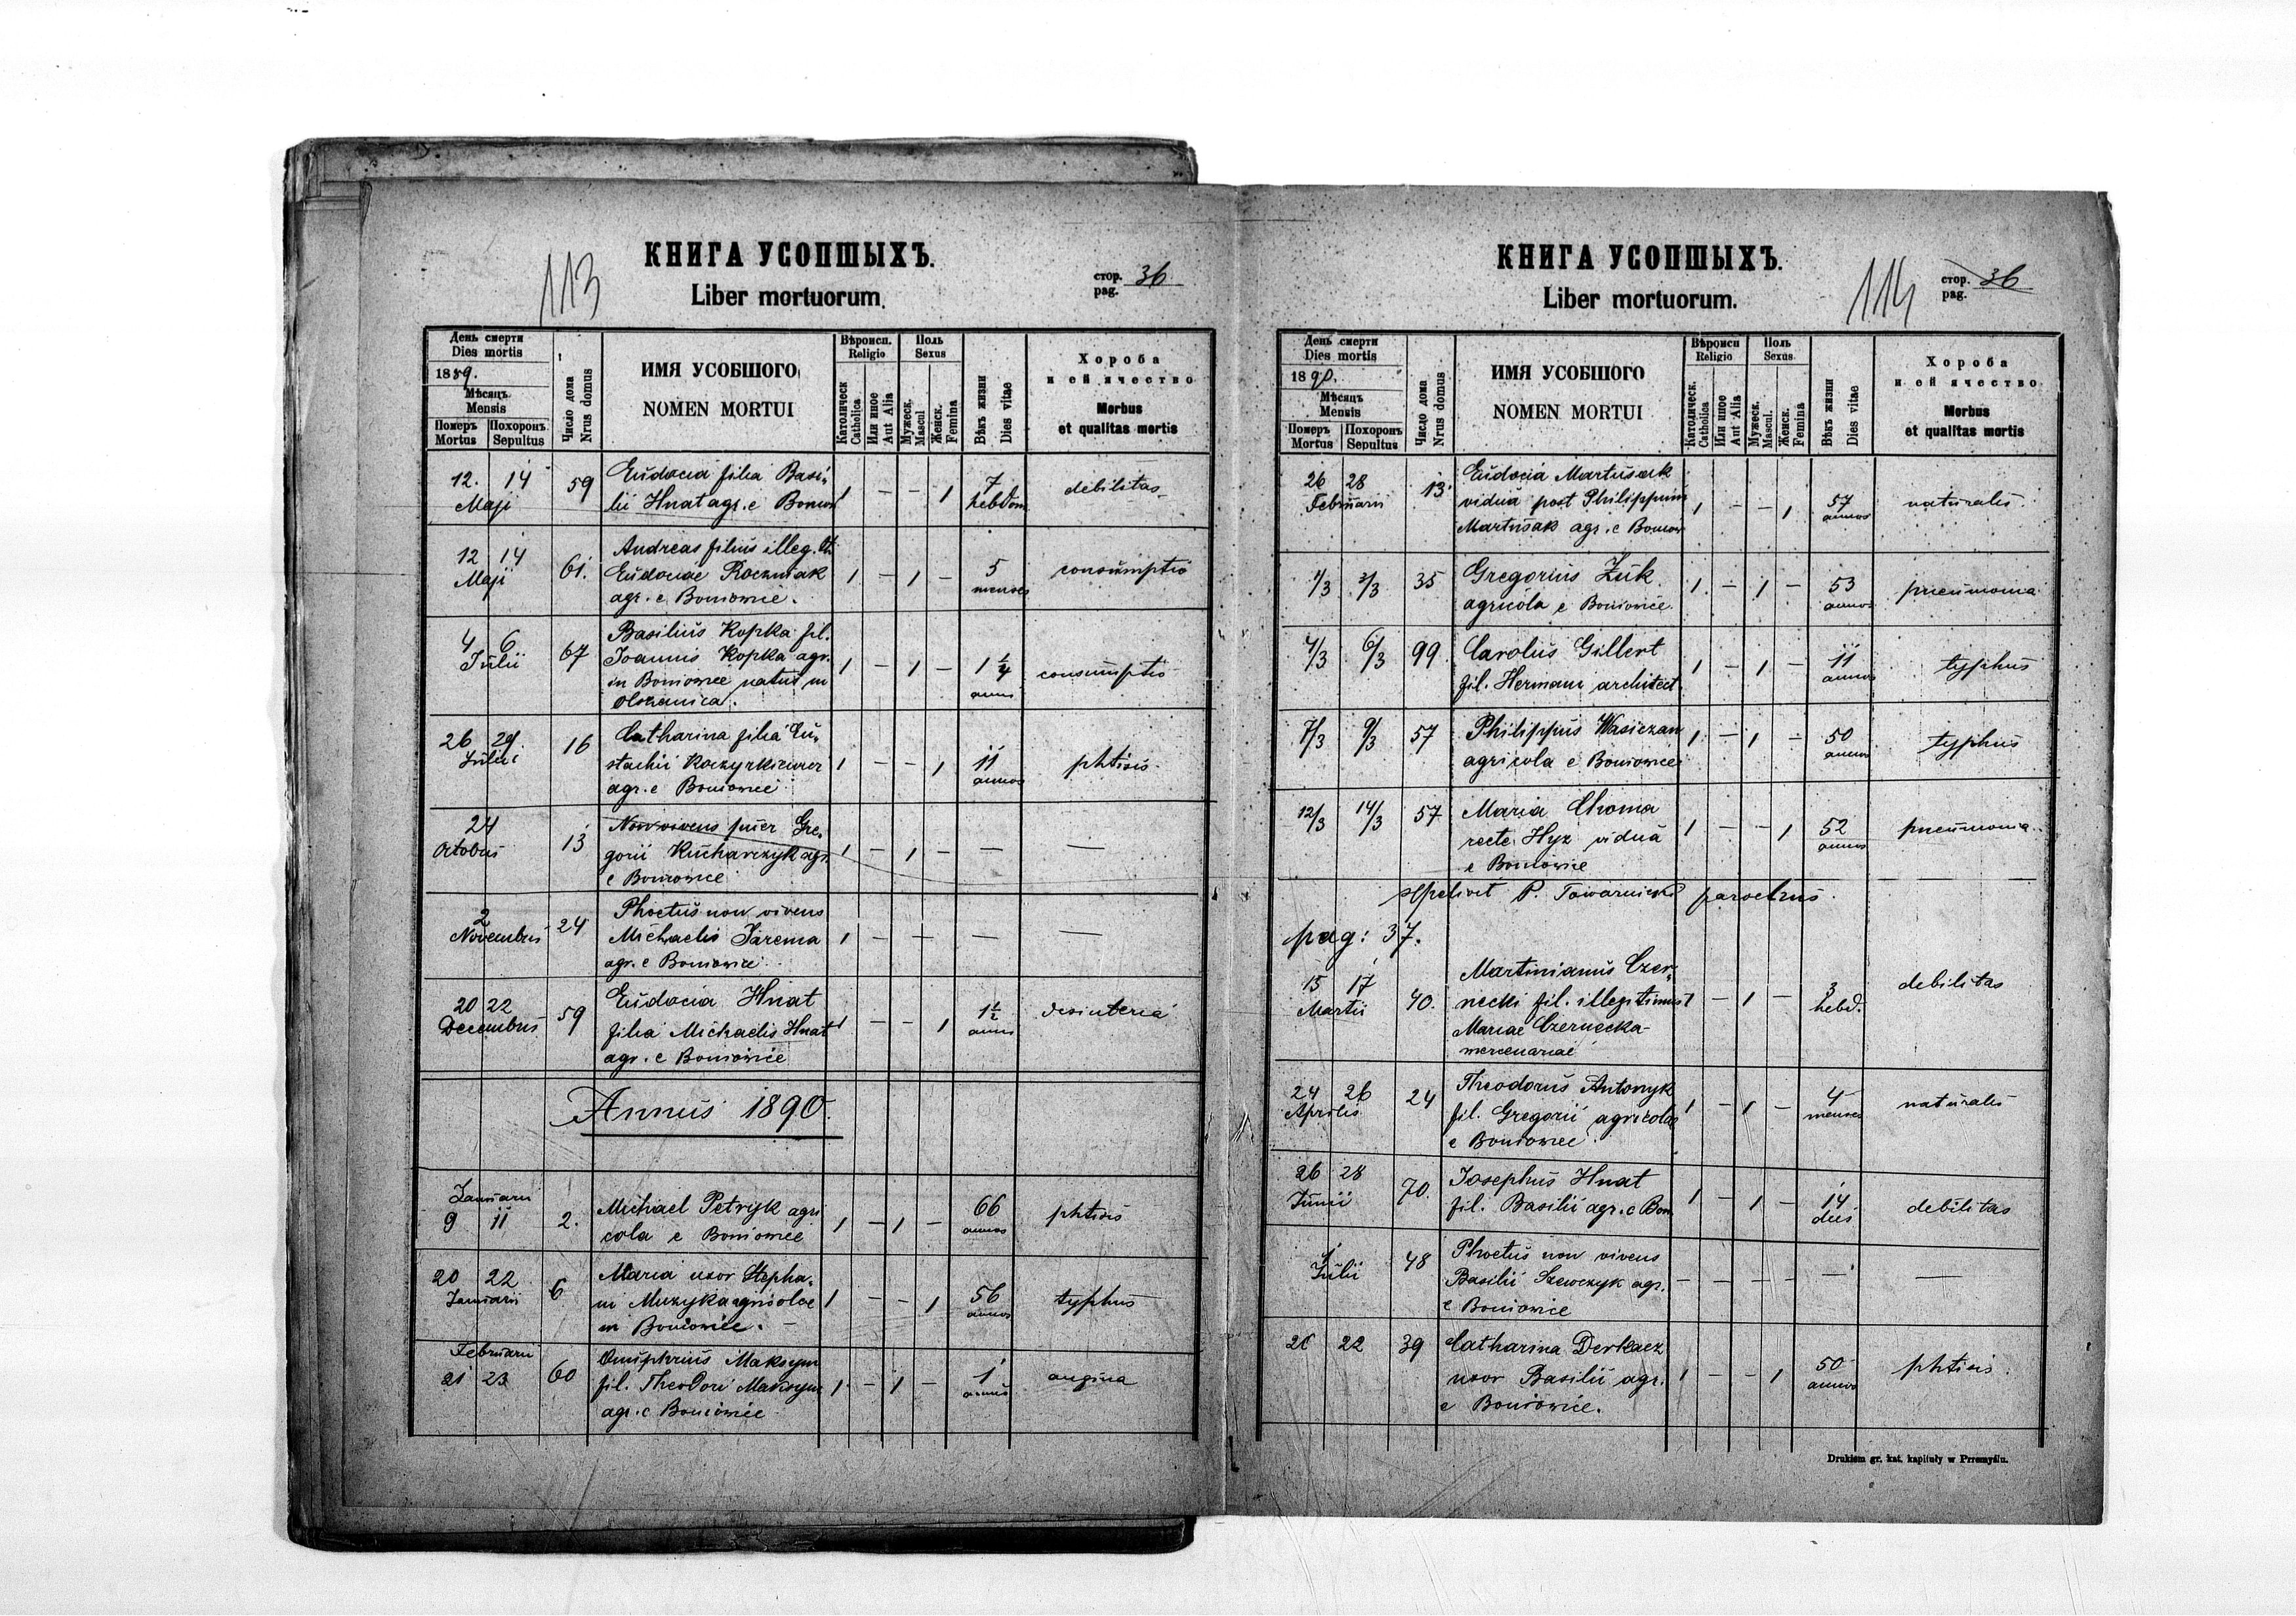 КНИГА УСОПШЫХЪ.
Liber mortuorum.
113
стор.
pag. 36
День смерти
Dies mortis
1889.
Мѣсяцъ
Mensis
Померъ Похоронъ
Mortus Sepultus
Число дома
Nrus domus
ИМЯ УСОБШОГО
NOMEN MORTUI
Вѣроисп.
Religio
Католическ
Catholica
Или иное
Aut Alia
Поль
Sexus
Мужеск.
Mascul
Женск.
Femina
Вѣкъ жизни
Dies vitae
Хороба
и ей ячество
Morbus
et qualitas mortis
12. 14 Maji 59 Eudocia filia Basi-
lii Hnat agr. e Boniow 1 — — 1 7 hebdom debilitas
12 14 Maji 61. Andreas filius illeg.
Eudociae Roczniak
agr. e Boniowice. 1 — 1 — 5 menses consumptio
4 6 Julii 67 Basilius Kopka fil.
Joannis Kopka agr.
in Boniowice natus in
Olszanica. 1 — 1 — 1 1/4 annus consumptio
26 29. Julii 16 Catharina filia Eu-
stachii
agr. e Boniowice 1 — — 1 11 annos phtisis
24 Octobris 13 Non vivens puer Gre-
gorii Kucharczyk agr.
e Boniowice 1 — 1 — — —
2 Novembris 24 Phoetus non vivens
Michaelis Jarema
agr. e Boniowice 1 — — — — —
20 22 Decembris 59 Eudocia Hnat
filia Michaelis Hnat
agr. e Boniowice 1 — — 1 1 1/2 annus desinteria
Annus 1890.
Januarii 9 11 2. Michael Petryk agri
cola e Boniowice 1 — 1 — 66 annos phtisis
20 22 Januarii 6 Maria uxor Stepha-
ni Muzyka agricolae
in Boniowice. 1 — — 1 56 annos typhus
Februarii 21 23 60 Onuphrius Maksym
fil. Theodori Maksym
agr. e Boniowice 1 — 1 — 1 annus angina
КНИГА УСОПШЫХЪ.
Liber mortuorum.
114
стор.
pag. 36
День смерти
Dies mortis
1890.
Мѣсяцъ
Mensis
Померъ Похоронъ
Mortus Sepultus
Число дома
Nrus domus
ИМЯ УСОБШОГО
NOMEN MORTUI
Вѣроисп
Religio
Католическ.
Catholica
Или иное
Aut Alia
Поль
Sexus
Мужеск.
Mascul.
Женск.
Femina
Вѣкъ жизни
Dies vitae
Хороба
и ей ячество
Morbus
et qualitas mortis
26 28 Februarii 13 Eudocia Martusak
vidua post Philippum
Martusak agr. e Boniow 1 — — 1 57 annos naturalis
1/3 3/3 35 Gregorius Żuk
agricola e Boniowice 1 — 1 — 53 annos pneumonia
4/3 6/3 99 Carolus Gillert
fil. Hermani architect. 1 — 1 — 11 annos typhus
7/3 9/3 57 Philippus Wasiczan
agricola e Boniowice 1 — 1 — 50 annos typhus
12/3 14/3 57 Maria Choma
recte Hyz vidua
e Boniowice 1 — — 1 52 annos pneumonia
sepelivit P. Towarnicki parochus.
pag: 37.
15 17 Martii 40. Martinianus Czer-
necki fil. illegitimus
Mariae Czernecka
mercenariae 1 — 1 — 3 hebd. debilitas
24 26 Aprilis 24 Theodorus Antonyk
fil. Gregorii agricolae
e Boniowice 1 — 1 — 4 menses naturalis
26 28 Junii 70. Josephus Hnat
fil. Basilii agr. e Bon. 1 — 1 — 14 dies debilitas
1 Julii 48 Phoetus non vivens
Basilii Szewczyk agr.
e Boniowice — — — — — —
20 22 39 Catharina Derkacz
uxor Basilii agr.
e Boniowice. 1 — — 1 50 annos phtisis
Drukiem gr. kat. kapituły w Przemyślu.